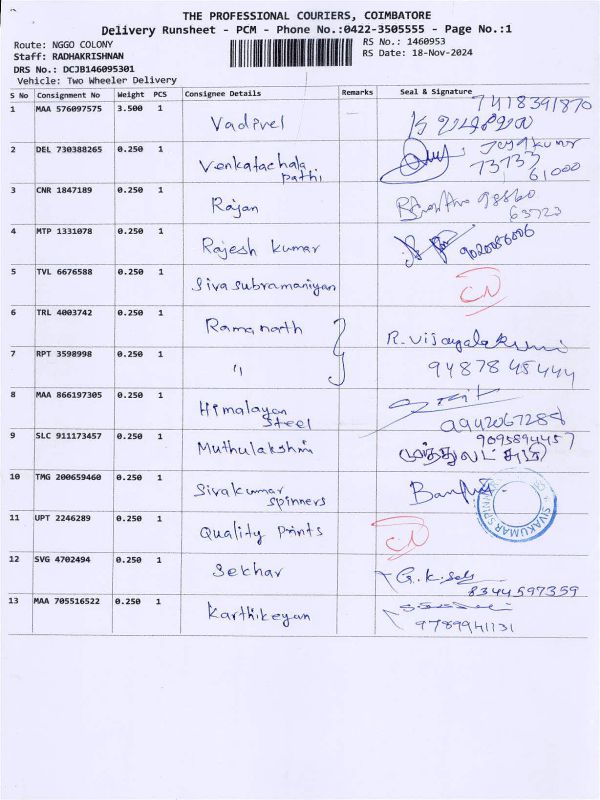 THE PROFESSIONAL COURIERS, COIMBATORE
Delivery Runsheet - PCM - Phone No.:0422-3505555 - Page No.:1
Route: NGGO COLONY
RS No.: 1460953
Staff: RADHAKRISHNAN
RS Date: 18-Nov-2024
DRS No.: DCJB146095301
Vehicle: Two Wheeler Delivery
S No Consignment No Weight PCS Consignee Details Remarks Seal & Signature
7418391870
1 MAA 576097575 3.500 1 Vadivel
2 DEL 730388265 0.250 1 Venkatachala Jayakumar
pathi 73733
61000
3 CNR 1847189 0.250 1 Rajan 98860
63723
4 MTP 1331078 0.250 1 Rajesh kumar 9020086006
5 TVL 6676588 0.250 1 Siva subramaniyan CN
6 TRL 4003742 0.250 1 Ramanath R. Vijayalakshmi
7 RPT 3598998 0.250 1 " 94878 45444
8 MAA 866197305 0.250 1 Himalayan
Steel 9942067288
9 SLC 911173457 0.250 1 Muthulakshmi 9095894457
முத்துலட்சுமி
10 TMG 200659460 0.250 1 Sivakumar
spinners SIVAKUMAR SPINN
11 UPT 2246289 0.250 1 Quality Prints CN
12 SVG 4702494 0.250 1 Sekhar G.K.
8344597359
13 MAA 705516522 0.250 1 Karthikeyan
9789941131